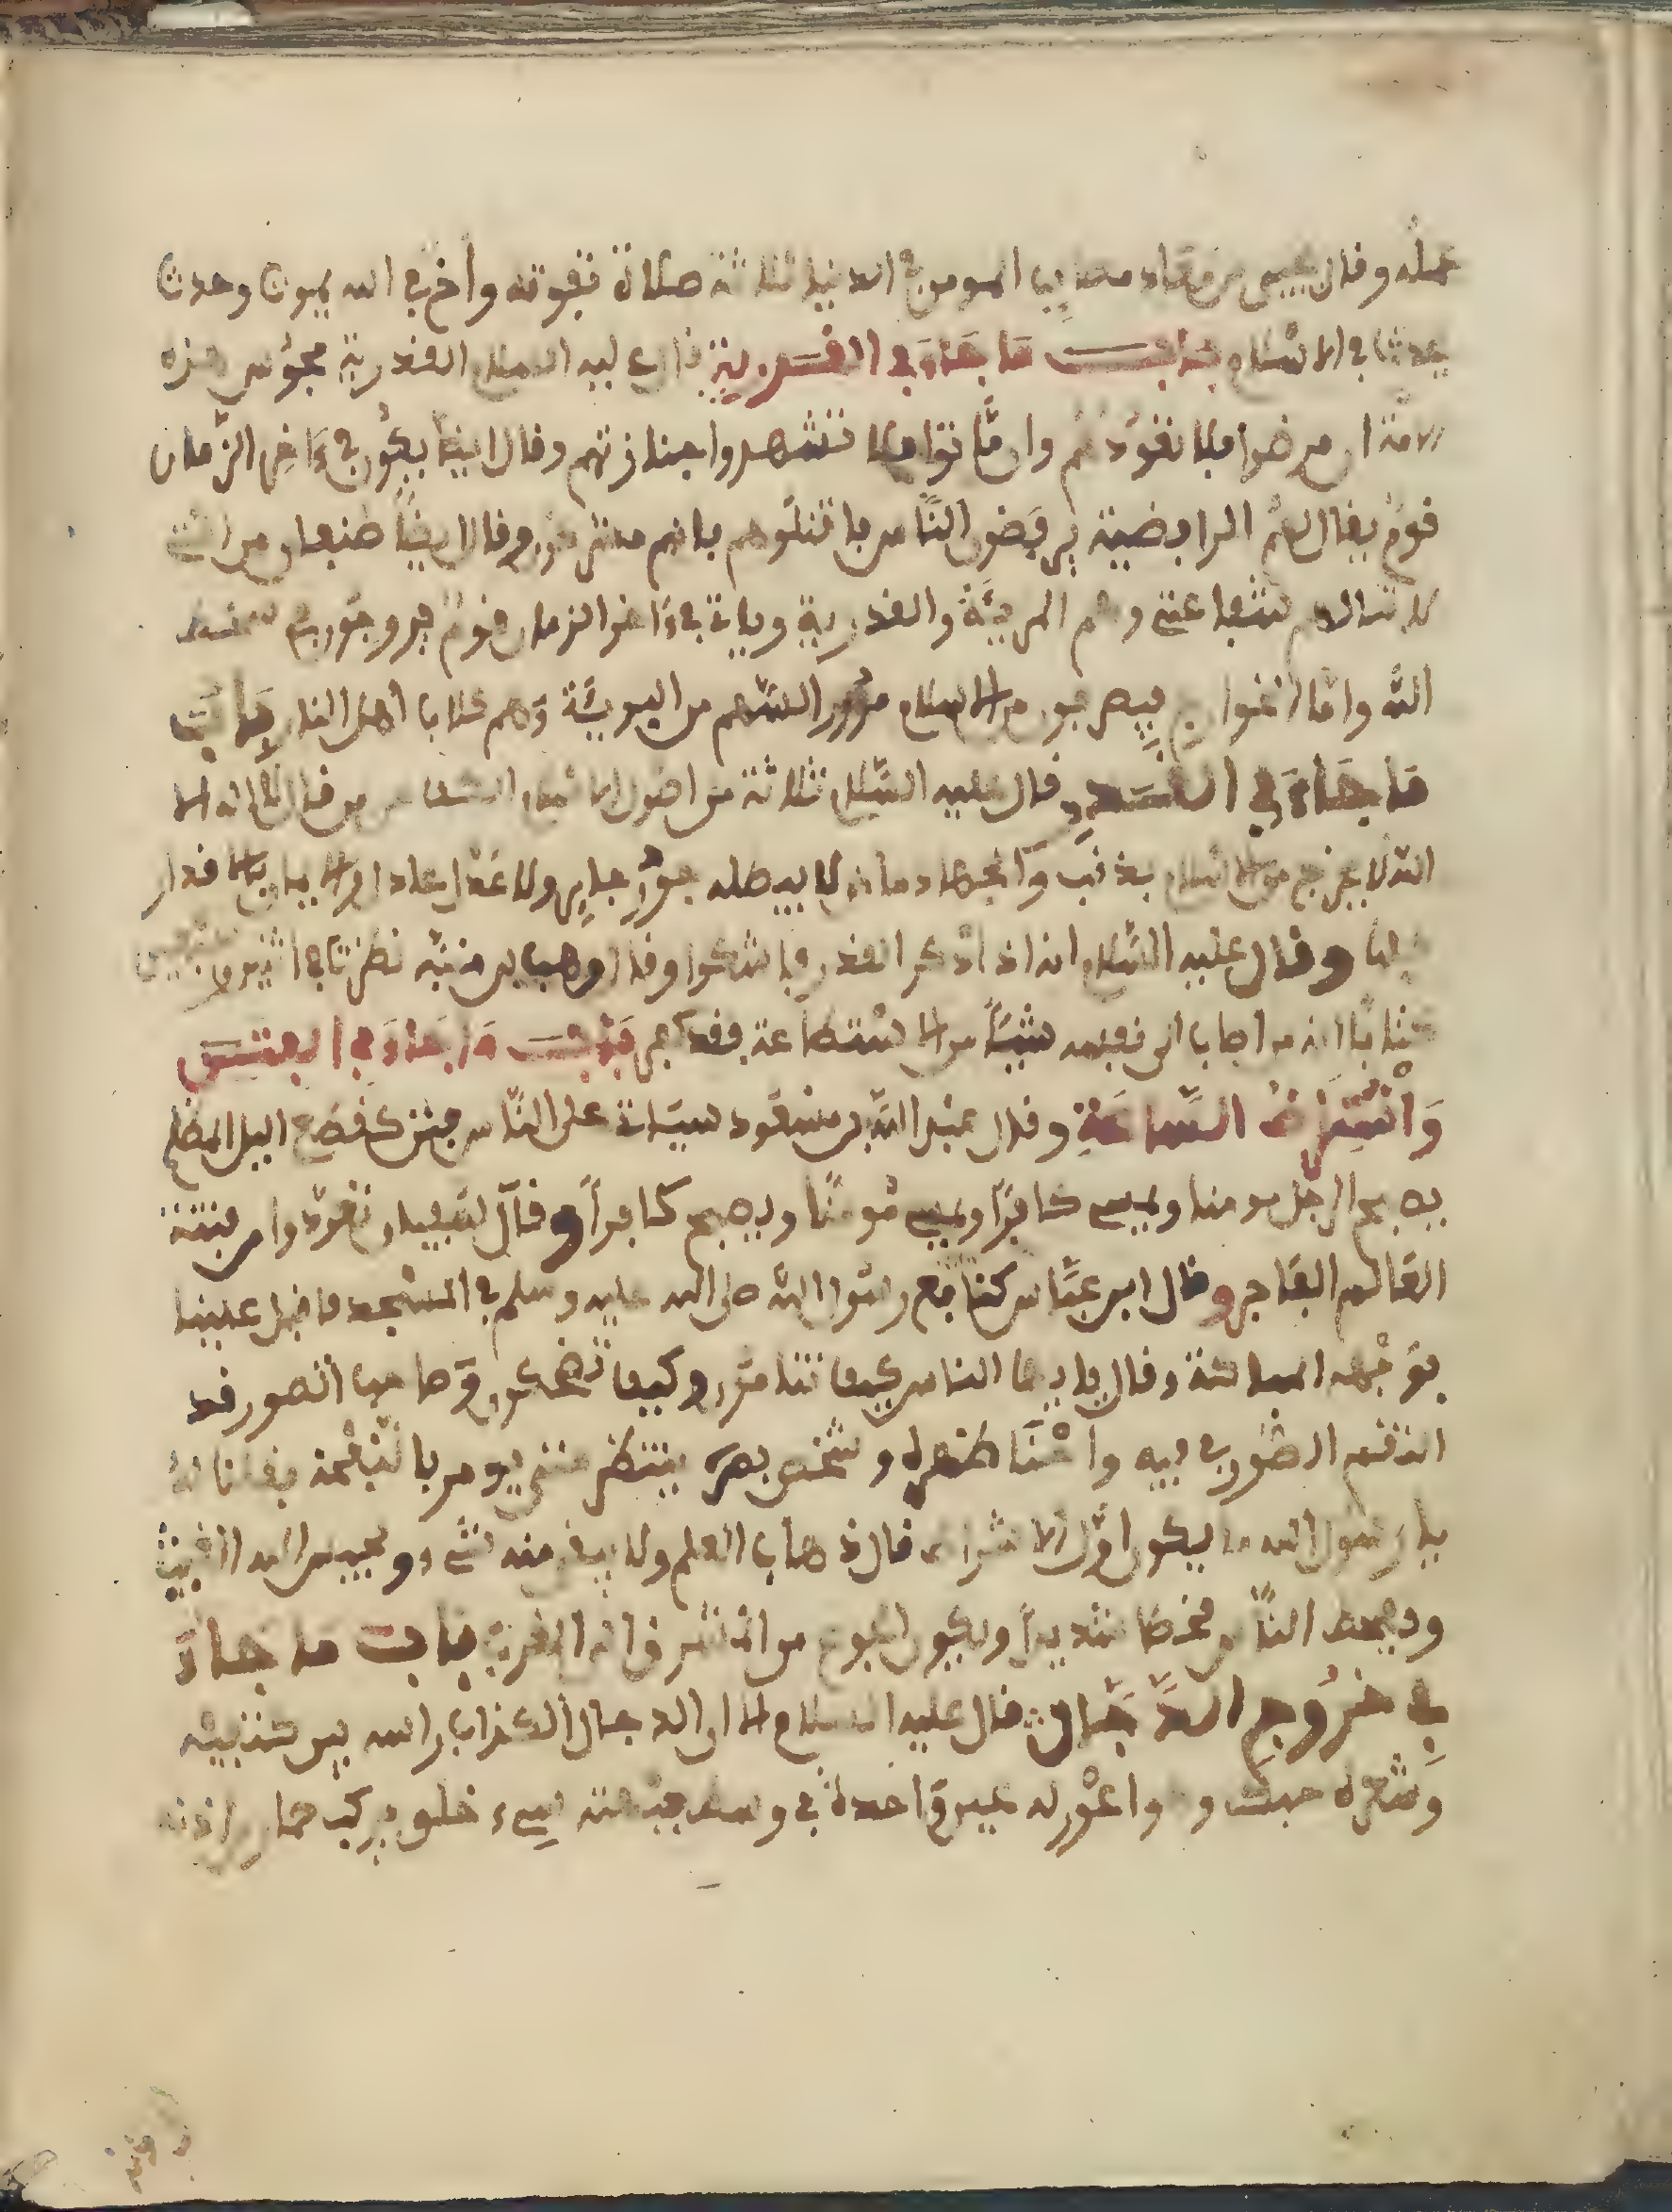 عمله وقال يحيى بن معاذ مصايب المومن في الدنيا ثلاثة صلاة تفوته وأخ في الله يموت وحدث
يحدث في الاسلام باب ما جاء في القدرية قال عليه السلام القدرية مجوس هذه
الامة ان مرضوا فلا تعودهم وان ماتوا فلا تشهدوا جنازتهم وقال ايضا يكون في ءاخر الزمان
قوم يقال لهم الرافضية يرفضون الناس فاقتلوهم فانهم مشركون وقال ايضا صنفان من امتي
لا تنالهم شفاعتي وهم المرجئة والقدرية وياتي في ءاخر الزمان قوم
الله وا فيصرفون من الاسلام مرور السهم من الرمية وهم كلاب أهل النار باب
ما جاء في قال عليه السلام ثلاثة من اصول الايمان الكف عن من قال لا اله الا
الله لا يخرج من الاسلام بذنب والجهاد ماض لا يبطله جور جاير ولا عدل عادل والايمان بالاقدار
وقال عليه السلام اذا ذكر القدر فامسكوا وقال وهب بن منبه نظرت في اثنين وسبعين
كتابا انه من اضاف الى نفسه شيئا من الاستطاعة فقد كفر باب ما جاء في الفتن
وأشراط الساعة وقال عبد الله بن مسعود سياتي على الناس فتن كقطع اليل المظلم
يصبح الرجل مومنا ويمسي كافرا ويمسي مومنا ويصبح كافرا وقال سفيان تعوذوا من فتنة
العالم الفاجر وقال ابن عباس كنا مع رسول الله صلى الله عليه وسلم في المسجد فاقبل علينا
بوجهه المباركة وقال يا ايها الناس كيف تنامون وكيف تضحكون وصاحب الصور قد
التقم الصور في فيه واحنا ظهره وشخص بصره ينتظر متى يومر بالنفخة فقلنا له
يا رسول الله ما يكون اول الاشراط قال ذهاب العلم ولا يبقى منه شيء ويحبس الله الغيث
ويقحط الناس قحطا شديدا ويكون الجوع من المشرق الى المغرب باب ما جاء
في خروج الدجال قال عليه السلام الا ان الدجال الكذاب راسه بين كتفيه
وشعره واعور له عين واحدة في وسط جبهته يركب حمار